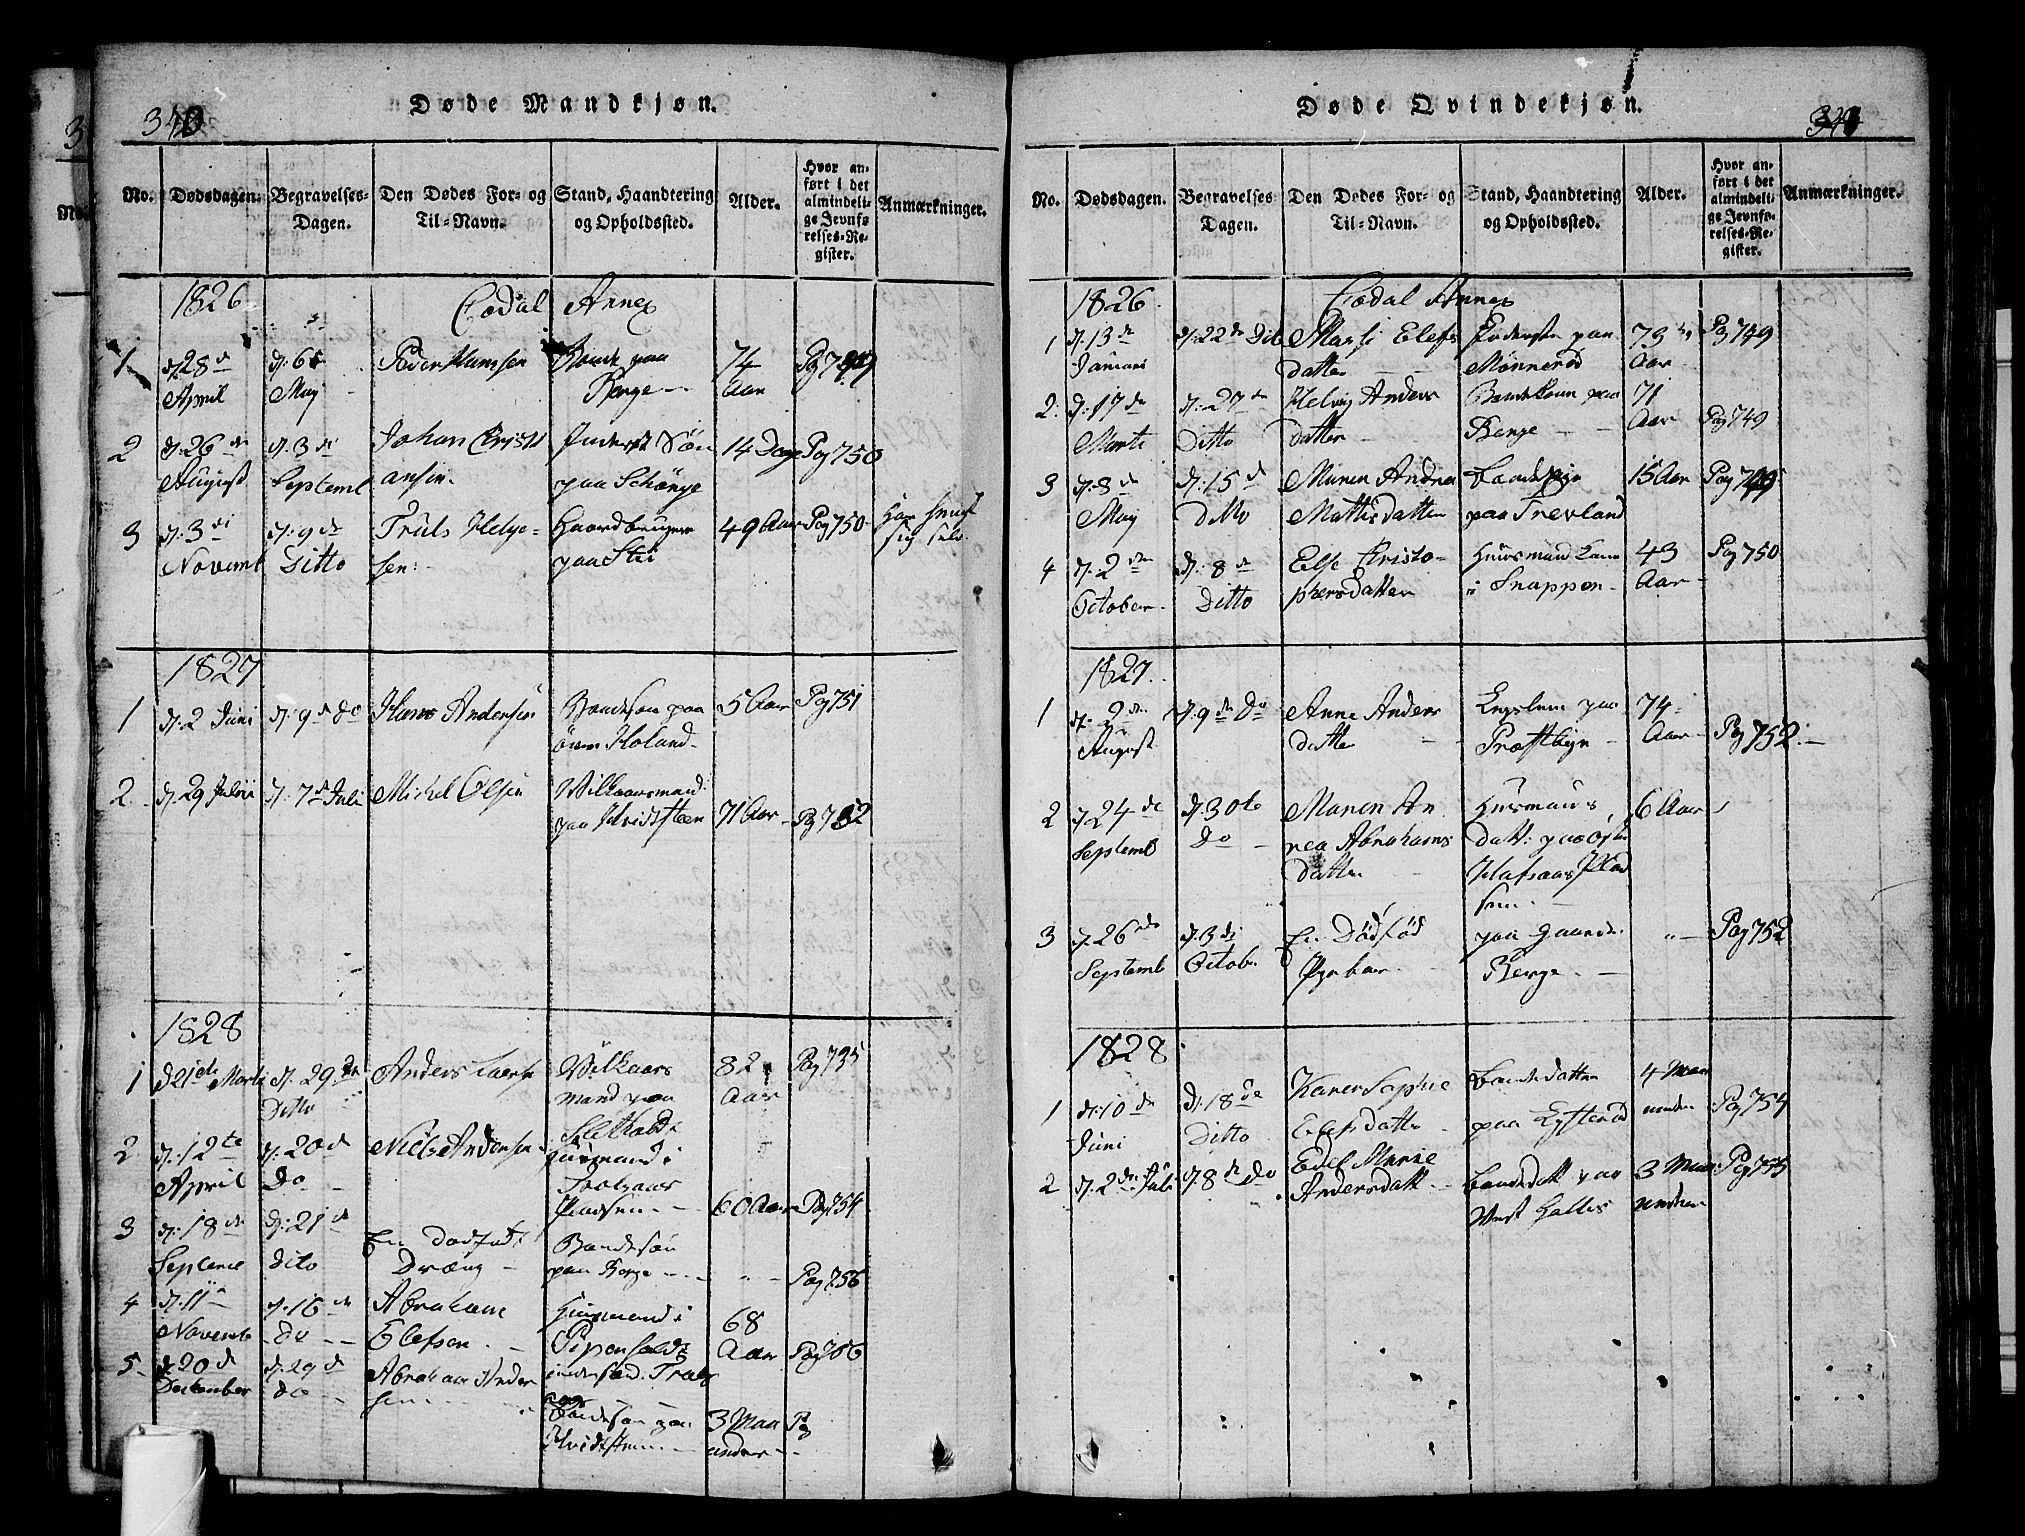 340
Døde Mandkjøn.
No.
Dødsdagen.
Begravelses-
Dagen.
Den Dødes For- og
Til-Navn.
Stand, Haandtering
og Opholdssted.
Alder.
Hvor an-
ført i det
almindeli-
ge Jevnfø-
relses-Re-
gister.
Anmærkninger.
1826
Codal Annex
1
d: 28 d
April
d: 6 t
Maj
Peder Hansen
Bonde paa
Berge
74
Aar
Pag 749
2
d: 26 de
August
d: 3 di
Septemb
Johan Christi
ansen
Inderst Søn
paa Schönge
14 Dage
Pag 750
3
d: 3 di
Novemb
d: 9 de
Ditto
Truls Helge-
sen:
Gaardbruger
paa Sti
49 Aar
Pag 750
Har hengt
sig selv
1827
1
d: 2 Juni
d: 9 d do
Hans Andersen
Bondesøn paa
öure Holand
5 Aar
Pag 751
2
d: 29 Junii
d: 7 d Juli
Michel Olsen
Wilkaarsmand
paa Hvidsteen
71 Aar
Pag 752
1828
1
d 21 de Marti
d: 29 de
Ditto
Anders Larse
Wilkaars
mand paa
82
Aar
Pag 735
2
d: 12 te
April
d: 20 d
do
Niels Andersen
Huusmand i
Pladsen
60 Aar
Pag 754
3
d: 18 de
Septemb
d: 21 de
dito
En Dødfød
Dræng
Bondesøn
paa Berge
Pag 756
4
d: 11
Novemb
d: 16 de
do
Abraham
Elefsen
Huusmand i
68
Aar
Pag 756
5
d 20 d
December
d: 29 d
do
Abraham Ander
sen
Bondesøn paa
Hvidsteen
3 Maa
neder
Pag
341
Døde Qvindekjøn.
No.
Dødsdagen.
Begravelses
Dagen.
Den Dødes For- og
Til-Navn.
Stand, Haandtering
og Opholdssted.
Alder.
Hvor an-
ført i det
almindeli-
ge Jevnfø-
relses-Re-
gister.
Anmærkninger.
1826
Codal Annex
1
d: 13 de
Januari
d: 22 de Dit
Marthi Elefs
datter
Inderste paa
Mönnerød
73
Aar
Pag 749
2
d: 17 de
Marti
d: 27 de
Ditto
Helvig Anders
datter
Bondekone paa
Berge
71
Aar
Pag 749
3
d: 8 de
Maj
d: 15 d
ditto
Maren Andrea
Mathisdatter
Bondepige
paa Trevland
15 Aar
Pag 749
4
d: 2 den
October
d: 8 d
Ditto
Else Christo-
phersdatter
Huusmand Kone
i Snappen
43
Aar
Pag 750
1827
1
d: 2 den
August
d: 9 de do
Anne Anders
datter
Enslem paa
Præstbyn
74
Aar
Pag 752
2
d: 24 de
Septemb
d: 30 te
do
Maren An
rea Abrahams
datter
Huusmans
datt: paa Øst
6 Aar
3
d: 26 de
Septemb
d: 3 di
Octob.
En Dödföd
Pigebar
paa Gaarde
Berge
Pag 752
1828
1
d: 10 de
Juni
d: 18 de
Ditto
Karen Sophie
Elefsdatter
Bondedatter
paa Lytterød
4 Maa
neder
Pag 754
2
d: 2 den Juli
d 8 de do
Edel Marie
Andersdatt
Bondedatt paa
West Halles
3 Maa
neder
Pag 755